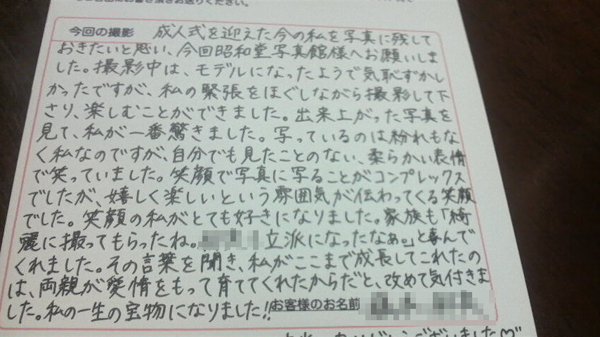 今回の撮影 成人式を迎えた今の私を写真に残して
おきたいと思い、今回昭和堂写真館様へお願いしま
した。撮影中は、モデルになったようで気恥ずかし
かったですが、私の緊張をほぐしながら撮影して下
さり、楽しむことができました。出来上がった写真を
見て、私が一番驚きました。写っているのは紛れもな
く私なのですが、自分でも見たことのない、柔らかい表情
で笑っていました。笑顔で写真に写ることがコンプレックス
でしたが、嬉しく楽しいという雰囲気が伝わってくる笑顔
でした。笑顔の私がとても好きになりました。家族も「綺
麗に撮ってもらったね。立派になったなぁ。」と喜んで
くれました。その言葉を聞き、私がここまで成長してこれたの
は、両親が愛情をもって育ててくれたからだと、改めて気付きま
した。私の一生の宝物になりました!! お客様のお名前
ありがとうございました♡